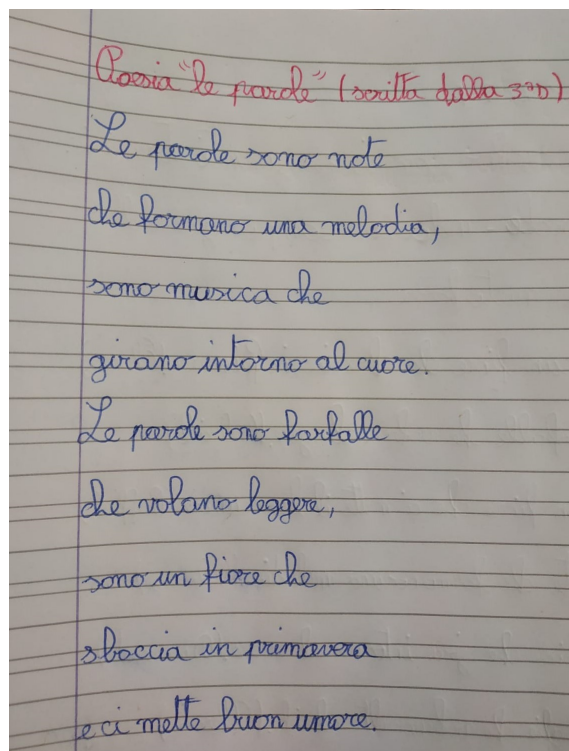 Poesia "le parole" (scritta dalla 3ªD)
Le parole sono note
che formano una melodia,
sono musica che
girano intorno al cuore.
Le parole sono farfalle
che volano leggere,
sono un fiore che
sboccia in primavera
e ci mette buon umore.